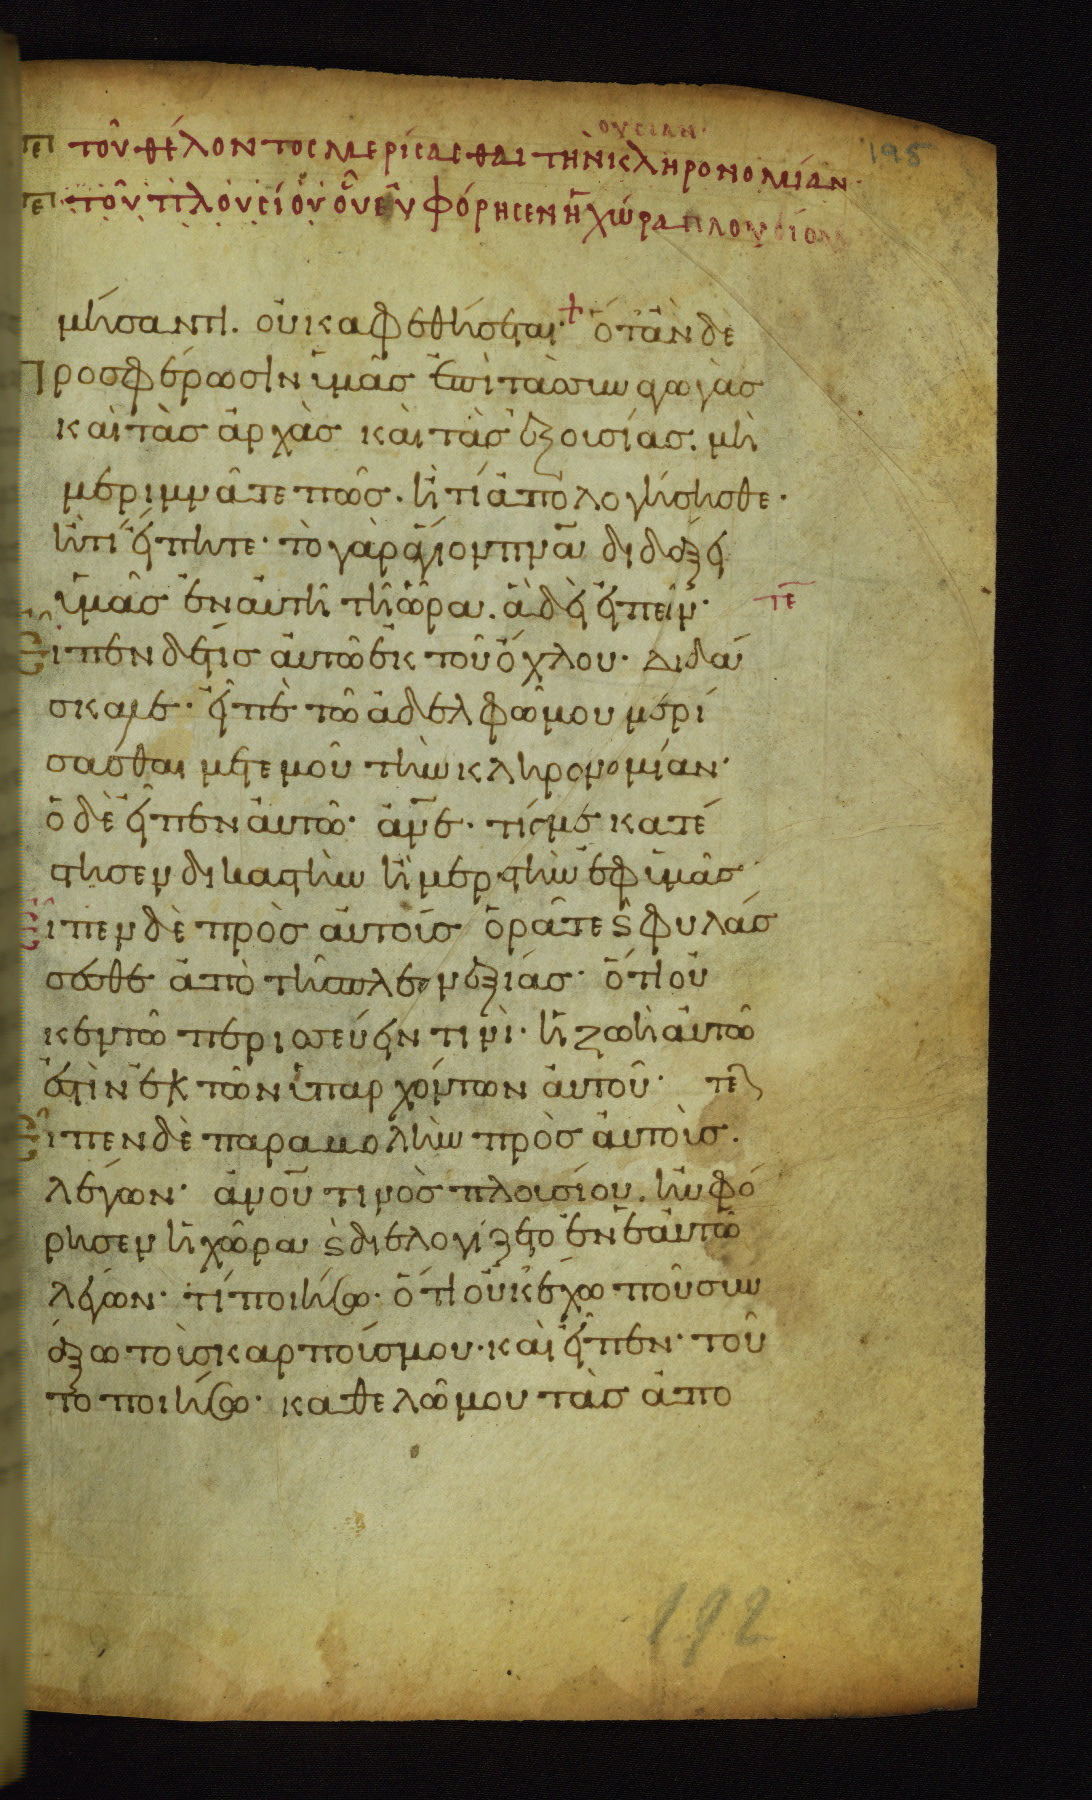 ουσιαν·
πε τοῦ θέλοντος μερίσασθαι τὴν κληρονομίαν· 195
πε τοῦ πλουσίου οὗ εὐφόρησεν ἡ χώρα πλουσίου
μήσαντι. οὐκ ἀφεθήσεται· + ὅτἂν δὲ
Προσφέρωσιν ὑμᾶσ ἐπὶ τὰσ συναγωγὰσ
καὶ τὰσ ἀρχὰσ καὶ τὰσ ἐξουσίασ. μὴ
μεριμνᾶτε πῶσ. ἢ τί ἀπολογήσησθε·
ἢ τί εἴπητε· τὸ γὰρ ἅγιον πνᾶ διδάξει
ὑμᾶσ ἐν αὐτῆ τῆ ὥρα. ἃ δεῖ εἰπεῖν· τε
Εἶπεν δέ τισ αὐτῶ ἐκ τοῦ ὄχλου· Διδά
σκαλε· εἶπὲ τῶ ἀδελφῶ μου μερί
σασθαι μετ ἐμοῦ τὴν κληρονομίαν·
ὁ δὲ εἶπεν αὐτῶ· ἄνε· τίσ με κατέ
στησεν δικαστὴν ἢ μεριστὴν ἐφ ὑμᾶσ·
Εἶπεν δὲ πρὸσ αὐτούσ ὁρᾶτε ϗ φυλάσ
σεσθε ἀπὸ τῆσ πλεονεξίασ· ὅτι οὐ
κ ἐν τῶ περισσεύειν τινὶ· ἡ ζωὴ αὐτῶ
ἐστὶν ἐκ τῶν ὑπαρχόντων αὐτοῦ· τελ
Εἶπεν δὲ παραβολὴν πρὸσ αὐτοὺσ.
λέγων· ἀνοῦ τινὸσ πλουσίου. ηὐφό
ρησεν ἡ χώρα ϗ διελογίζετο ἐν ἑαυτῶ
λέγων· τί ποιήσω· ὅτι οὐκ ἔχω ποῦ συν
άξω τοὺσ καρπούσ μου· καὶ εἶπεν· τοῦ
το ποιήσω· καθελῶ μου τὰσ ἀπο
192